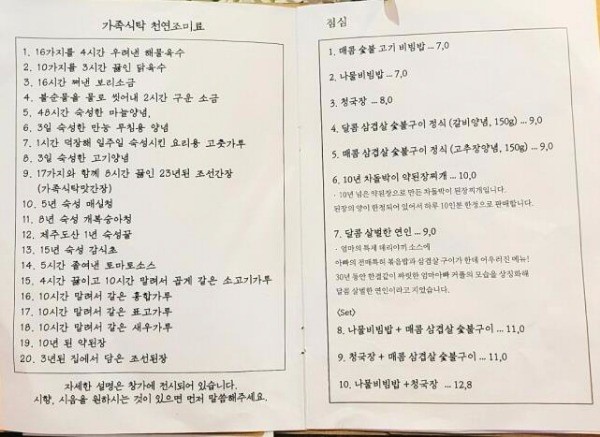 가족식탁 천연조미료
1. 16가지를 4시간 우려낸 해물육수
2. 10가지를 3시간 끓인 닭육수
3. 16시간 쪄낸 보리소금
4. 불순물을 물로 씻어내 2시간 구운 소금
5. 48시간 숙성한 마늘양념.
6. 3일 숙성한 만능 무침용 양념
7. 1시간 덕장해 일주일 숙성시킨 요리용 고춧가루
8. 3일 숙성한 고기양념
9. 17가지와 함께 8시간 끓인 23년된 조선간장
(가족식탁맛간장)
10. 5년 숙성 매실청
11. 8년 숙성 개복숭아청
12. 제주도산 1년 숙성꿀
13. 15년 숙성 감식초
14. 5시간 졸여낸 토마토소스
15. 4시간 끓이고 10시간 말려서 곱게 갈은 소고기가루
16. 10시간 말려서 갈은 홍합가루
17. 10시간 말려서 갈은 표고가루
18. 10시간 말려서 갈은 새우가루
19. 10년 된 약된장
20. 3년된 집에서 담은 조선된장
자세한 설명은 창가에 전시되어 있습니다.
시향, 시음을 원하시는 것이 있으면 먼저 말씀해주세요.
점심
1. 매콤 숯불 고기 비빔밥 ... 7,0
2. 나물비빔밥 ... 7,0
3. 청국장 ... 8,0
4. 달콤 삼겹살 숯불구이 정식 (갈비양념, 150g) ... 9,0
5. 매콤 삼겹살 숯불구이 정식 (고추장양념, 150g) ... 9,0
6. 10년 차돌박이 약된장찌개 ... 10,0
· 10년 넘은 약된장으로 만든 차돌박이 된장찌개입니다.
된장의 양이 한정되어 있어서 하루 10인분 한정으로 판매합니다.
7. 달콤 살벌한 연인 ... 9,0
· 엄마의 특제 데리야끼 소스에
아빠의 전매특허 볶음밥과 삼겹살 구이가 한데 어우러진 메뉴!
30년 동안 한결같이 짜릿한 엄마아빠 커플의 모습을 상징화해
달콤 살벌한 연인이라고 지었습니다.
<Set>
8. 나물비빔밥 + 매콤 삼겹살 숯불구이 ... 11,0
9. 청국장 + 매콤 삼겹살 숯불구이 ... 11,0
10. 나물비빔밥 +청국장 ... 12,8